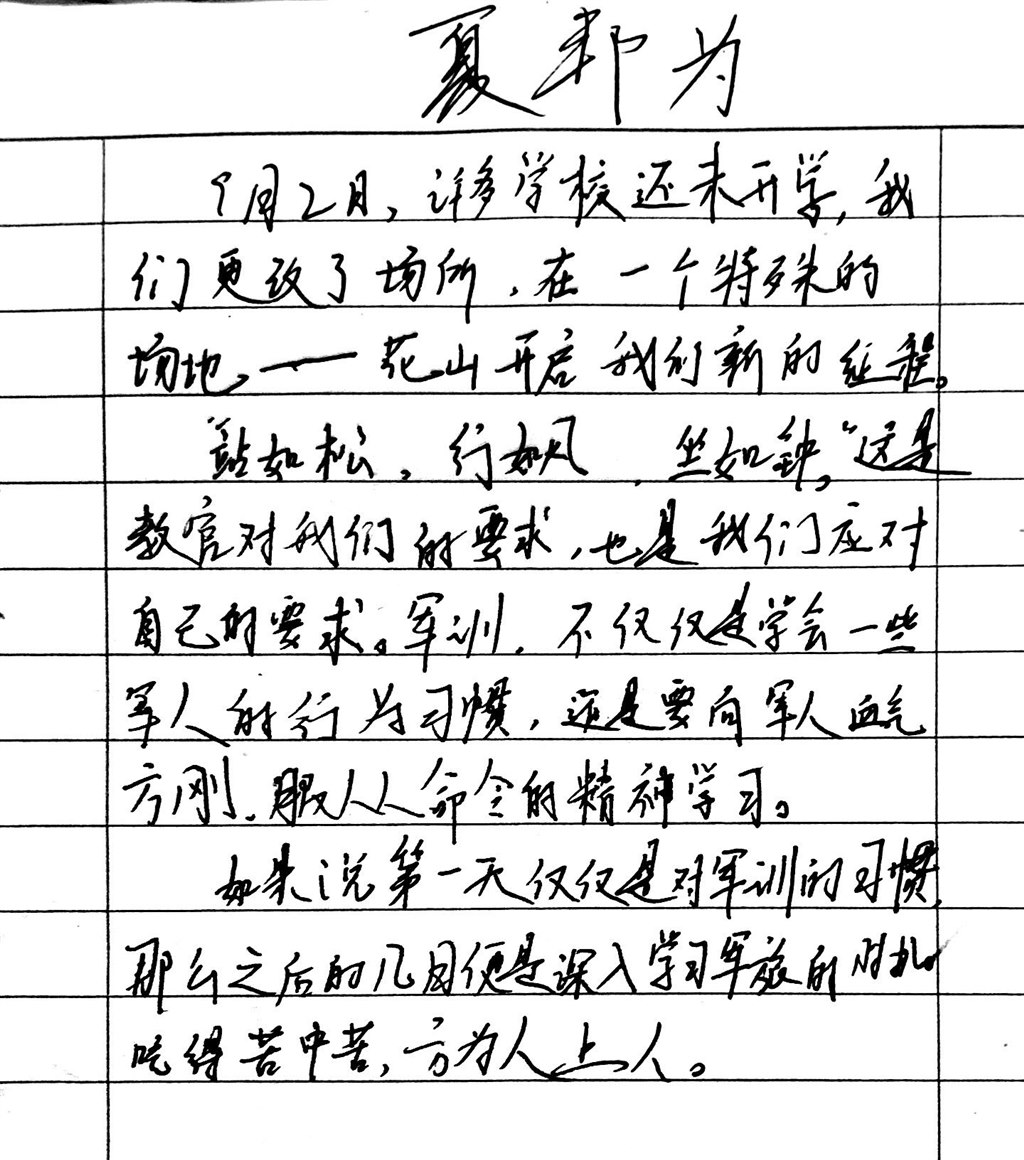 夏邦为
9月2日，许多学校还未开学，我
们更改了场所，在一个特殊的
场地，——花山开启我们新的征程。
“站如松，行如风，坐如钟。”这是
教官对我们的要求，也是我们应对
自己的要求。军训，不仅仅是学会一些
军人的行为习惯，还是要向军人血气
方刚、服从命令的精神学习。
如果说第一天仅仅是对军训的习惯，
那么之后的几日便是深入学习军旅的时机。
吃得苦中苦，方为人上人。